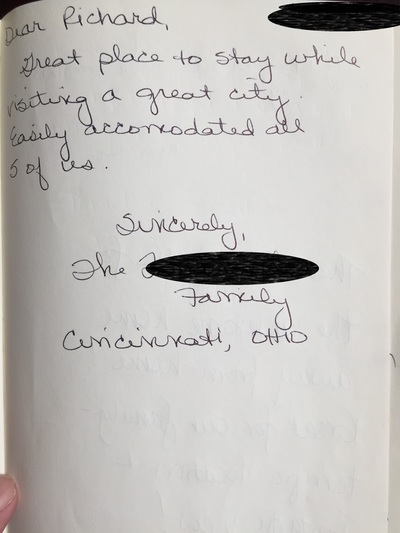 Dear Richard,
Great place to stay while
visiting a great city.
Easily accomodated all
5 of us.
Sincerely,
The
Family
Cincinnati, OHIO